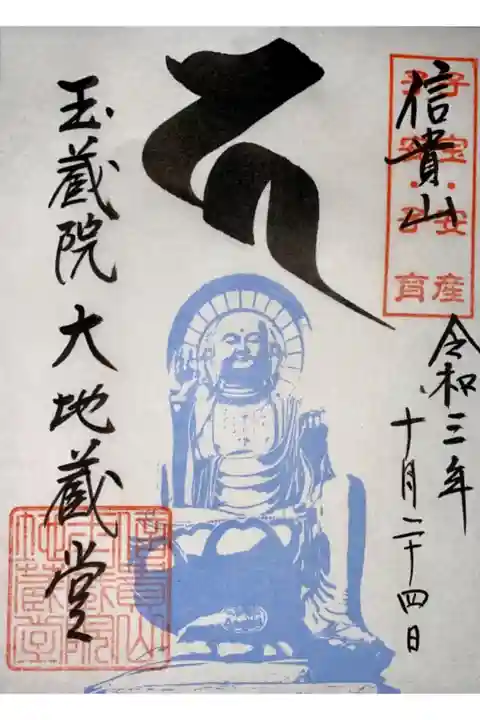 子宝・安産
信貴山
令和三年
十月二十四日
玉蔵院大地蔵堂
信貴山
玉蔵院
地蔵堂